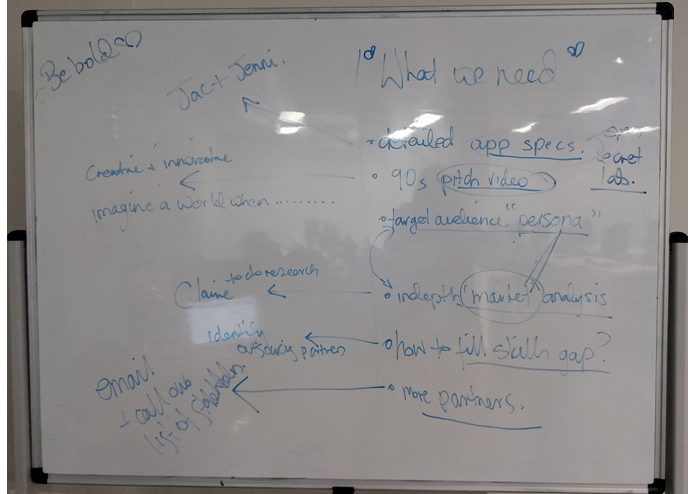 Be bold
Jac + Jenni.
"What we need"
• detailed app specs.
open
secret
lab.
Creative + innovative
• 90s pitch video
imagine a world when .........
• target audience "persona"
to do research
Claire
• indepth market analysis
identify
outsourcing partners
• how to fill skills gap?
email
+ call our
list of
• more partners.